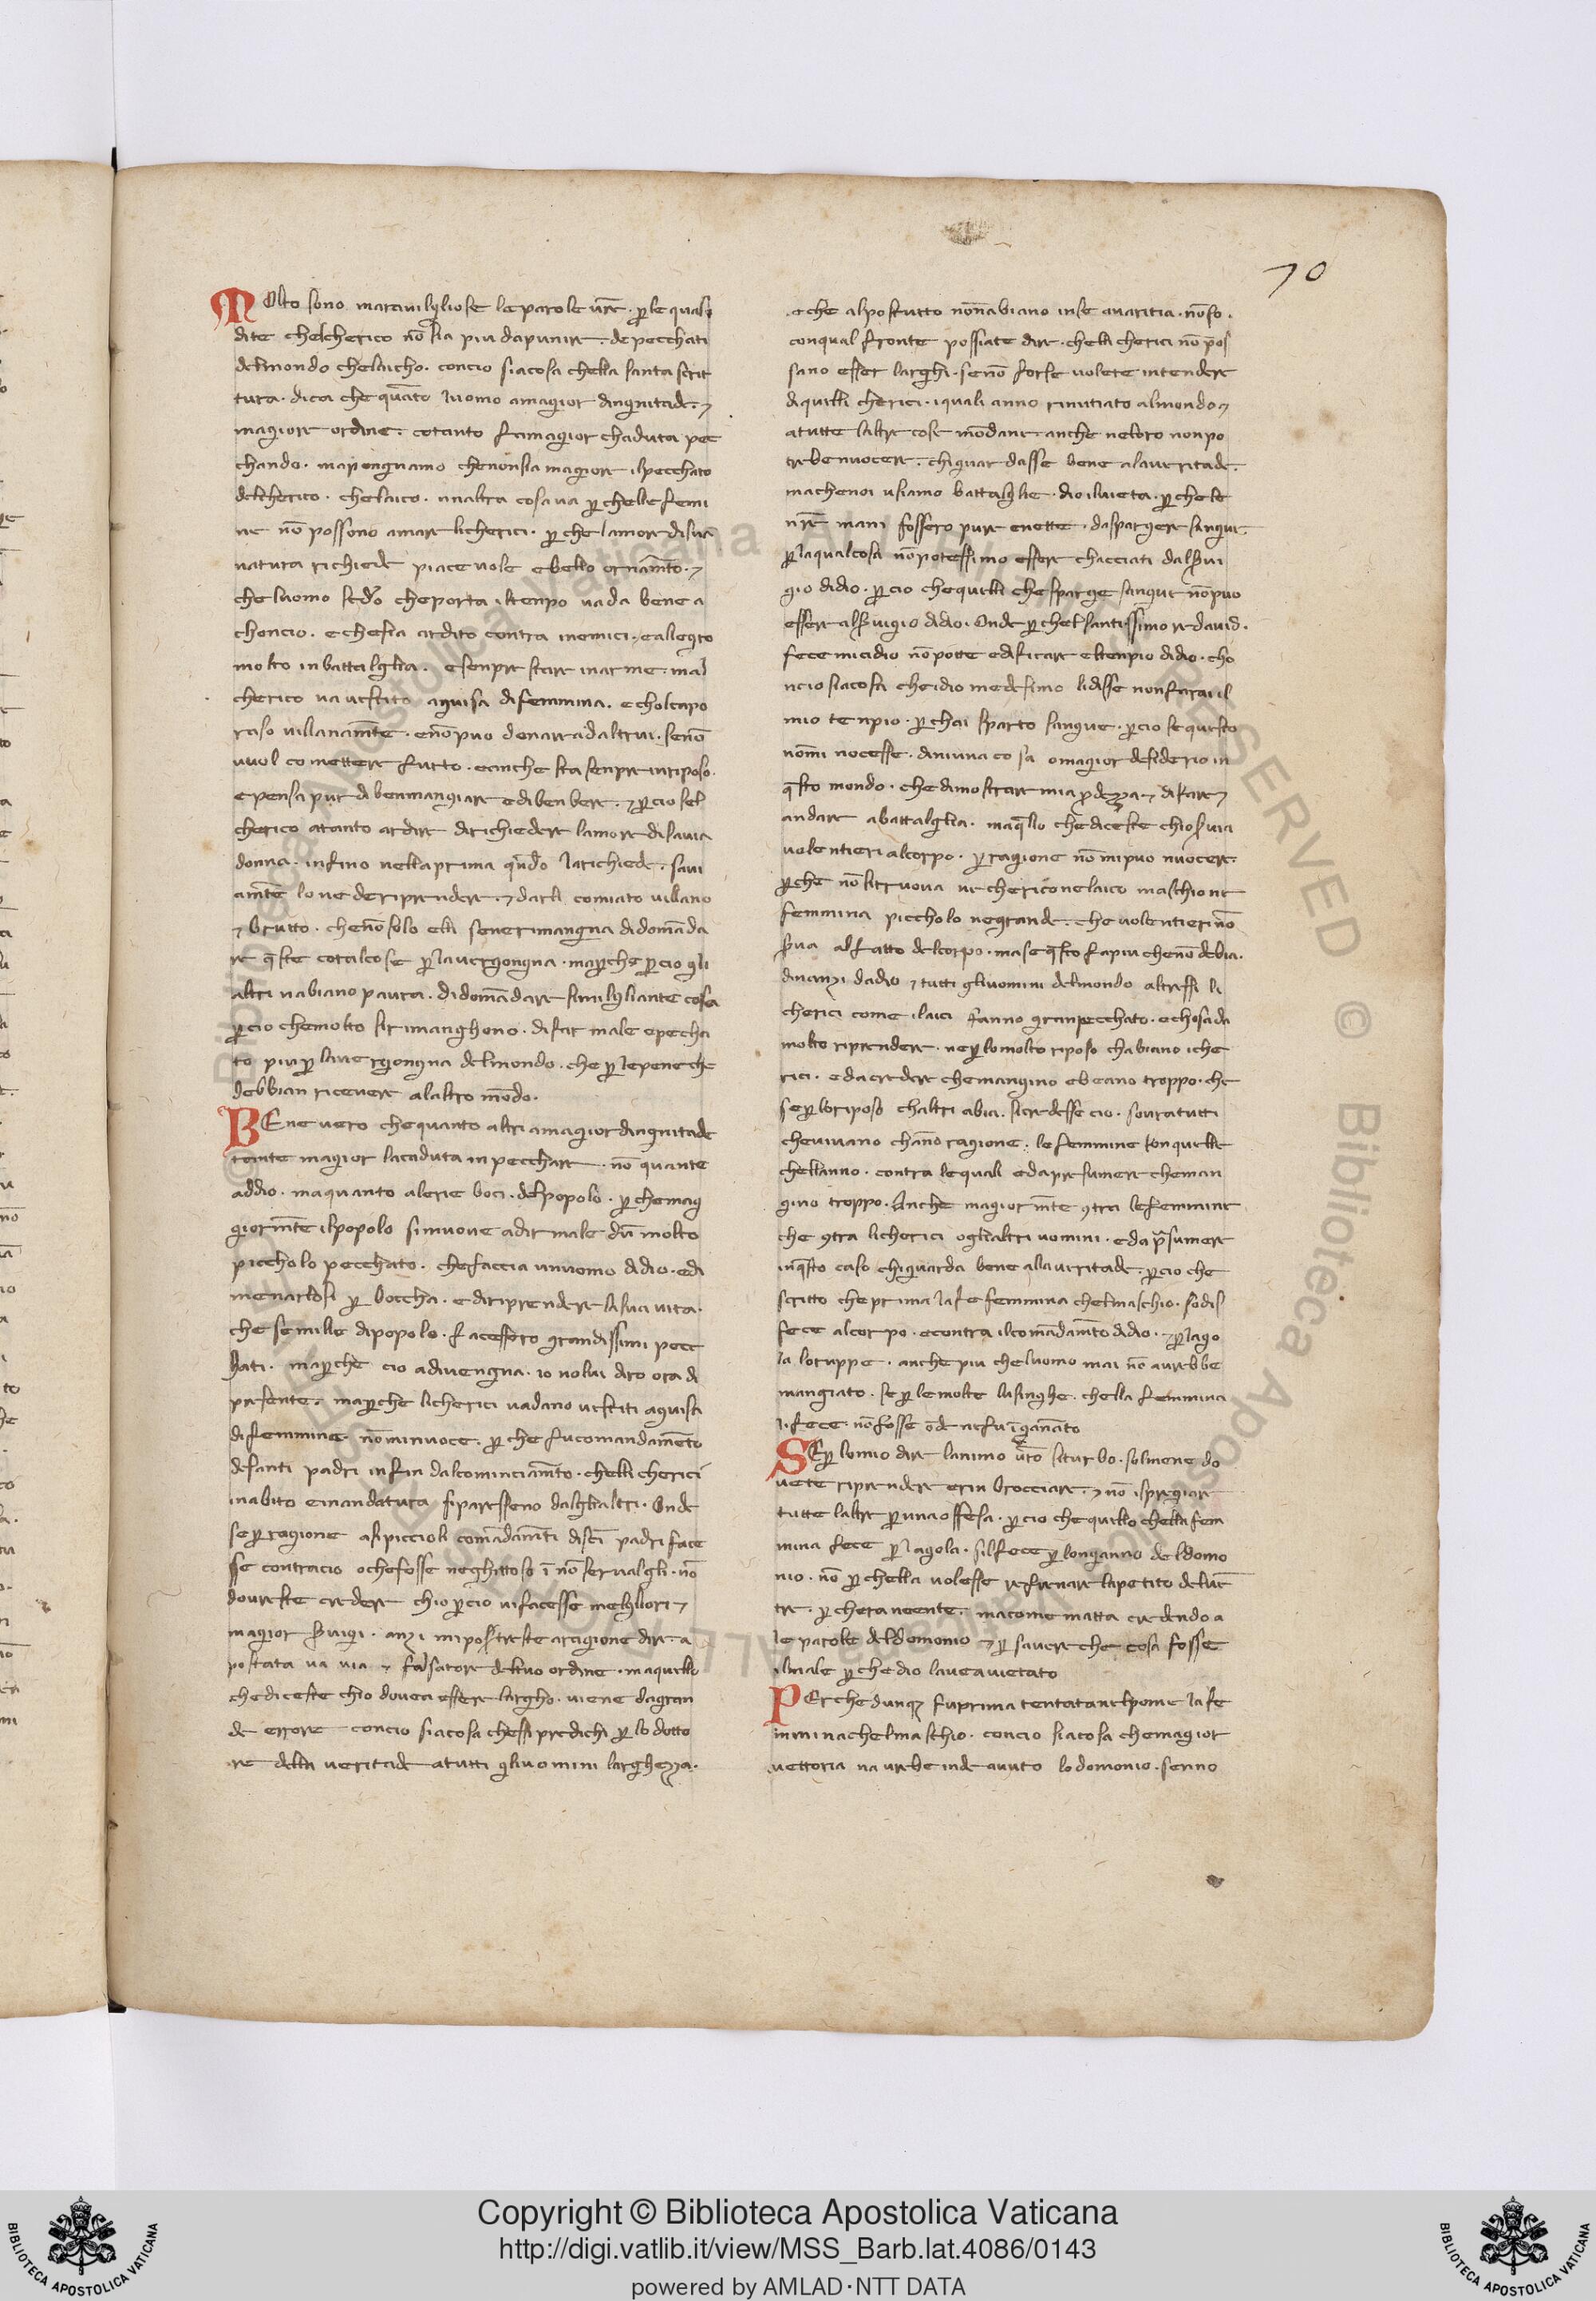 70
MOlto sono maravilgliose le parole vr̃e · ꝑ le quali
dite chelcherico nō sia piu dapunire · de pecchati
delmondo chelaicho · concio siacosa chella santa scrit
tura · dica che quāto luomo amagior dingnitade · ⁊
magiore ordine · cotanto famagior chaduta pec
chando · mapengnamo chenonsia magiore ilpecchato
delcherico · chelaico · unaltra cosa va ꝑ chelle femi
ne nō possono amare licherici · ꝑ che lamor disua
natura richiede piacevole ebello ornam̄to · ⁊
che luomo scđo cheporta iltenpo vada bene a
choncio · echesia ardito contra inemici · eallegro
molto inbattalglia · esenpre stare inarme · mal
cherico va vestito aguisa difemmina · echolcapo
raso villanam̄te · enōpuo donare adaltrui · senō
vuol comettere furto · eanche sta senpre inriposo ·
epensa pur dibenmangiare edibenbere · ⁊ ꝑ cio sel
cherico atanto ardire dirichiedere lamore disavia
donna · infino nellaprima qñdo larichiede · savi
am̄te lo ne deriprendere · ⁊ darli comiato villano
⁊ brutto · chenōsolo elli senerimangna didomāda
re q̄ste cotalcose ꝑ lavergongna · maꝑche ꝑ cio gli
altri nabiano paura · didomādare similgliante cosa
ꝑcio chemolto sirimanghono · difar male epecha
to piu ꝑ lavergongna delmondo · che ꝑ lepene che
debbian ricevere alaltro mōdo ·
BEne vero chequanto altri amagior dingnitade
tante magior lacaduta inpecchare · nō quante
addio · maquanto alerie boci · delpopolo · ꝑ chemag
giorm̄te ilpopolo simuove adir male dū molto
piccholo pecchato · chefaccia unuomo didio · edi
menarlosi ꝑ boccha · ediriprendere lasua vita ·
che semille dipopolo · facessero grandissimi pecc
hati · maꝑche cio adivengna · io nolvi diro ora di
presente · maꝑche licherici vadano vestiti aguisa
difemmine · nōminuoce · ꝑ che fucomandam̄eto
desanti padri infin dalcominciam̄to · chelli cherici
inabito einandatura sipartisseno dalglialtri · Onde
se ꝑ ragione asipiccioli comādam̄ti disc̄i padri face
sse contracio ochefosse neghittoso ī nō servalgli · nō
dovreste credere chio ꝑcio vifacesse melgliori ⁊
magior ẜvigi · anzi miposreste aragione dire · a
postata va via ⁊ falsatore deltuo ordine · maquello
chediceste chio dovea essere largho · viene dagran
de errore concio siacosa chessi predichi ꝑ lo dotto
re della veritade atutti gliuomini larghezza ·
eche alpostutto nonabiano inse avaritia · nōso ·
conqual fronte possiate dire · chelli cherici nō pos
sano esser larghi · senō forse volete intendere
diquelli cherici · iquali anno rinutiato almondo ⁊
atutte laltre cose mōdane · anche neloro nonpo
trebenuocere · chiguardasse bene alaveritade ·
machenoi usiamo battaglie · dio ilvieta · ꝑ che le
nr̃e mani fossero pure enette · daspargere sangue ·
ꝑ laqualcosa nōpotessimo essere chacciati dalẜvi
gio didio · ꝑ cio chequelli che sparge sangue nōpuo
essere alẜvigio didio · Onde ꝑ chelsantissimo re david ·
fece micidio nō potte edificare eltenpio didio · cho
ncio siacosa cheidio medesimo lidisse nonfarai il
mio tenpio · ꝑ chai sparto sangue · ꝑcio se questo
nōmi nocesse · diniuna cosa omagior desiderio in
q̄sto mondo · chedimostrare mia ꝓdezza ⁊ difare ⁊
andare abattalglia · maq̄llo chediceste chioẜvia
volentieri alcorpo · ꝑ ragione nō mipuo nuocere ·
ꝑche nō sitruova ne cherico nelaico maschio ne
femmina piccholo negrande · che volentieri nō
ẜva alfatto delcorpo · mase q̄sto fapiu chenō debia ·
dinanzi dadio ⁊ tutti gliuomini delmondo altressi li
cherici come ilaici fanno granpecchato · echosada
molto riprendere · neꝑ lomolto riposo chabiano iche
rici · edacredere chemangino ebeano troppo · che
seꝑ loriposo chaltri abia · sicredesse cio · sovratutti
chevivano chāno ragione · le femmine sonquelle
chellanno · contra lequali edapresumere cheman
gino troppo · Anche magiorm̄te ꝯtra lefemmine
che ꝯtra licherici oglialtri uomini · edap̄sumere
inq̄sto caso chiguarda bene allaveritade · ꝑcio che
scritto cheprima lafe femmina chelmaschio · sodis
fece alcorpo · econtra ilcomādam̄to didio · ⁊ ꝑ lago
la loruppe · anche piu cheluomo mai nō avrebbe
mangiato · se ꝑ lemolte lusinghe · chella femmina
lifece · nōfosse ōde nefu īgan̄ato
SEꝑ lomio dire lanimo vr̄o siturbo · solmene do
vete riprendere erinbrocciare · ⁊ nō ispregiare
tutte laltre ꝑ una offesa · ꝑ cio che quello chella fem
mina fece ꝑ lagola · silfece ꝑ longanno deldomo
nio · nō ꝑ chella volesse refrenare lapetito delvē
tre · ꝑ chetaneente · macome matta credendo a
le parole deldomonio ⁊ ꝑ savere che cosa fosse
ilmale ꝑ chedio laveavietato
PErchedunqȝ fuprima tentata nelpome lafe
mminachelmaschio · concio siacosa chemagior
vettoria navrebe indeavuto lodomonio · senno
Copyright © Biblioteca Apostolica Vaticana
http://digi.vatlib.it/view/MSS_Barb.lat.4086/0143
powered by AMLAD·NTT DATA
BIBLIOTECA APOSTOLICA VATICANA
BIBLIOTECA APOSTOLICA VATICANA